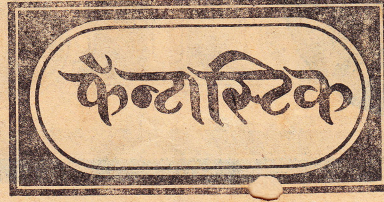 फॅन्टास्टिक